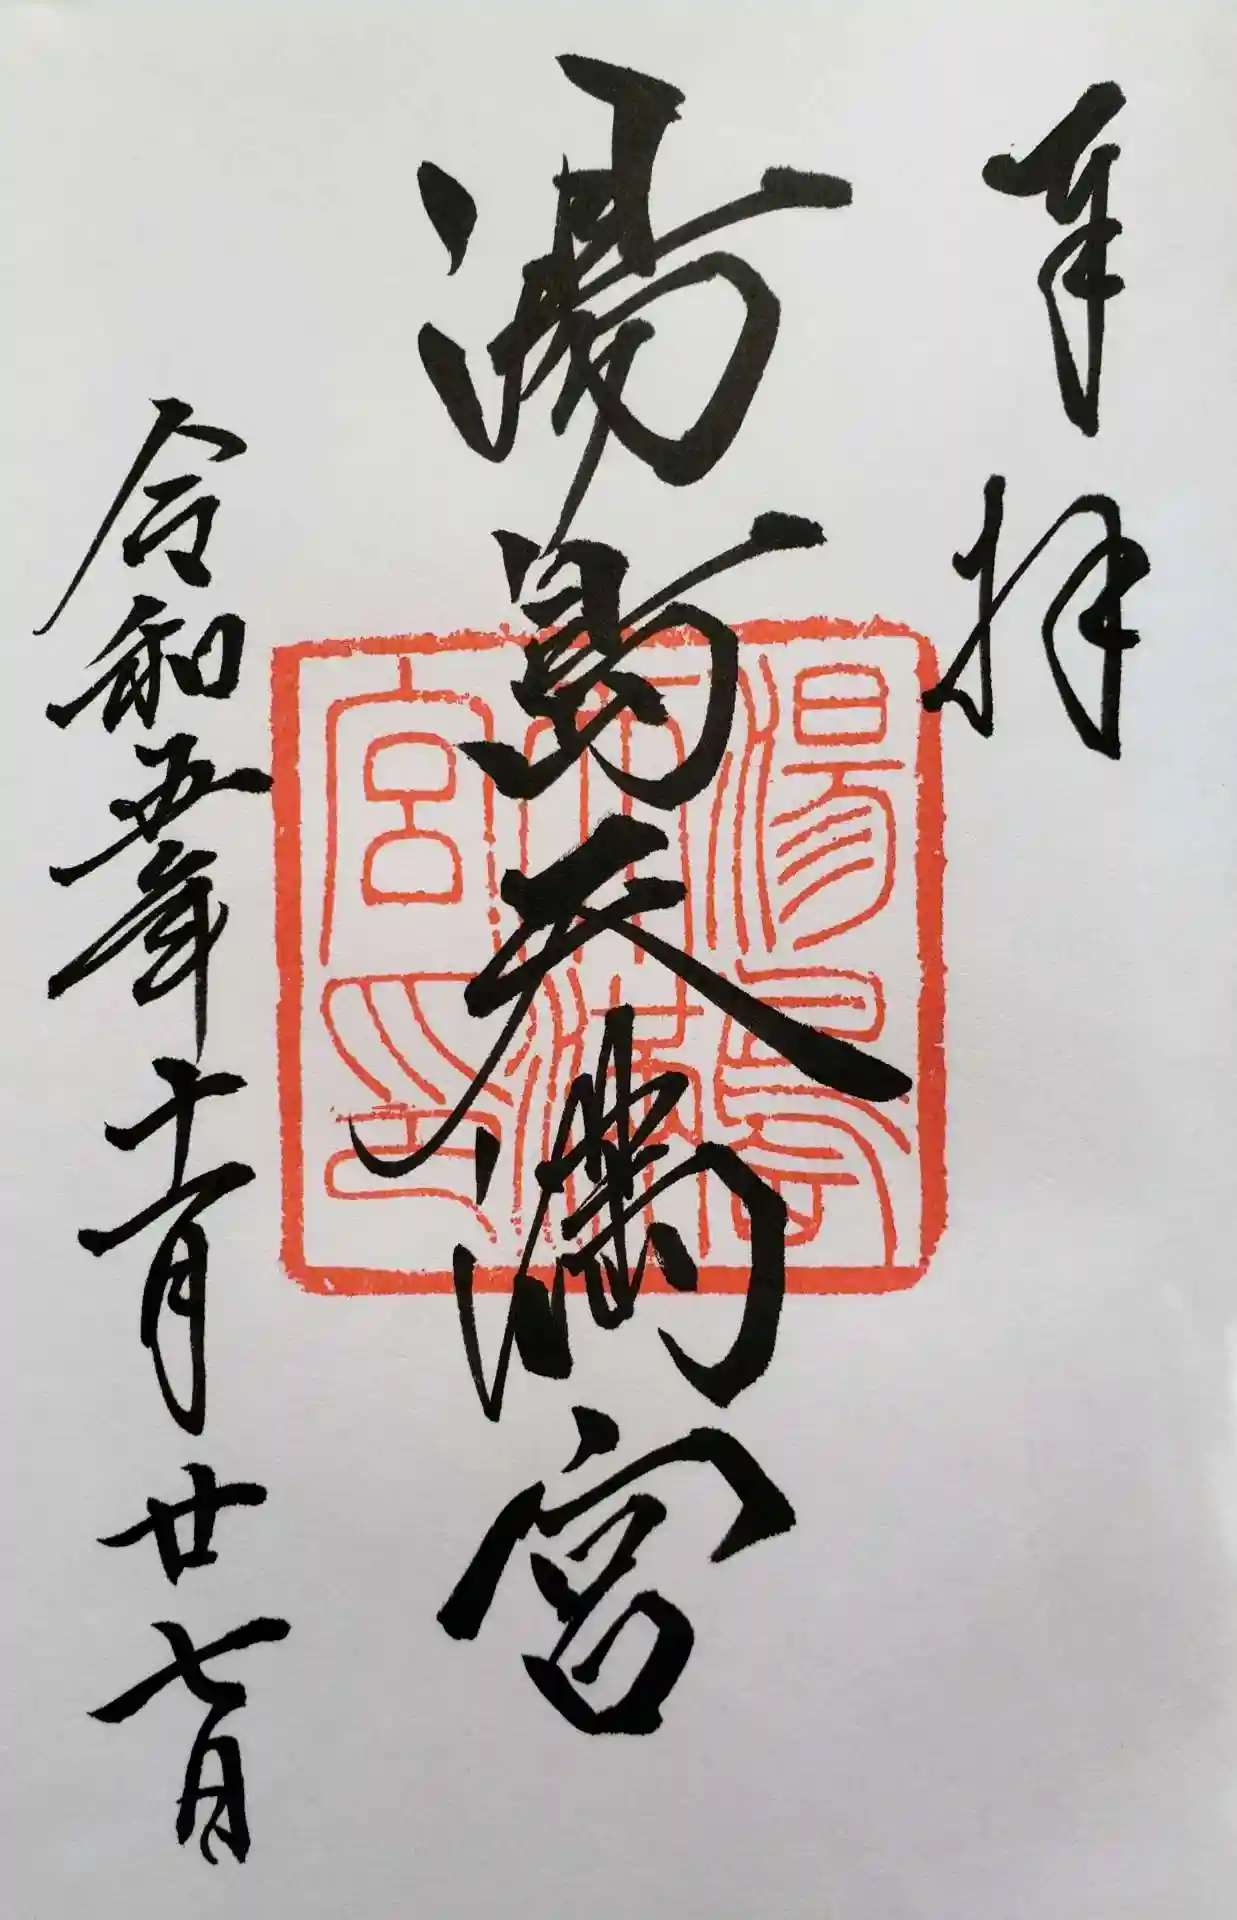 奉拝
湯島天満宮
令和五年十一月廿七日
湯島
天満
宮印